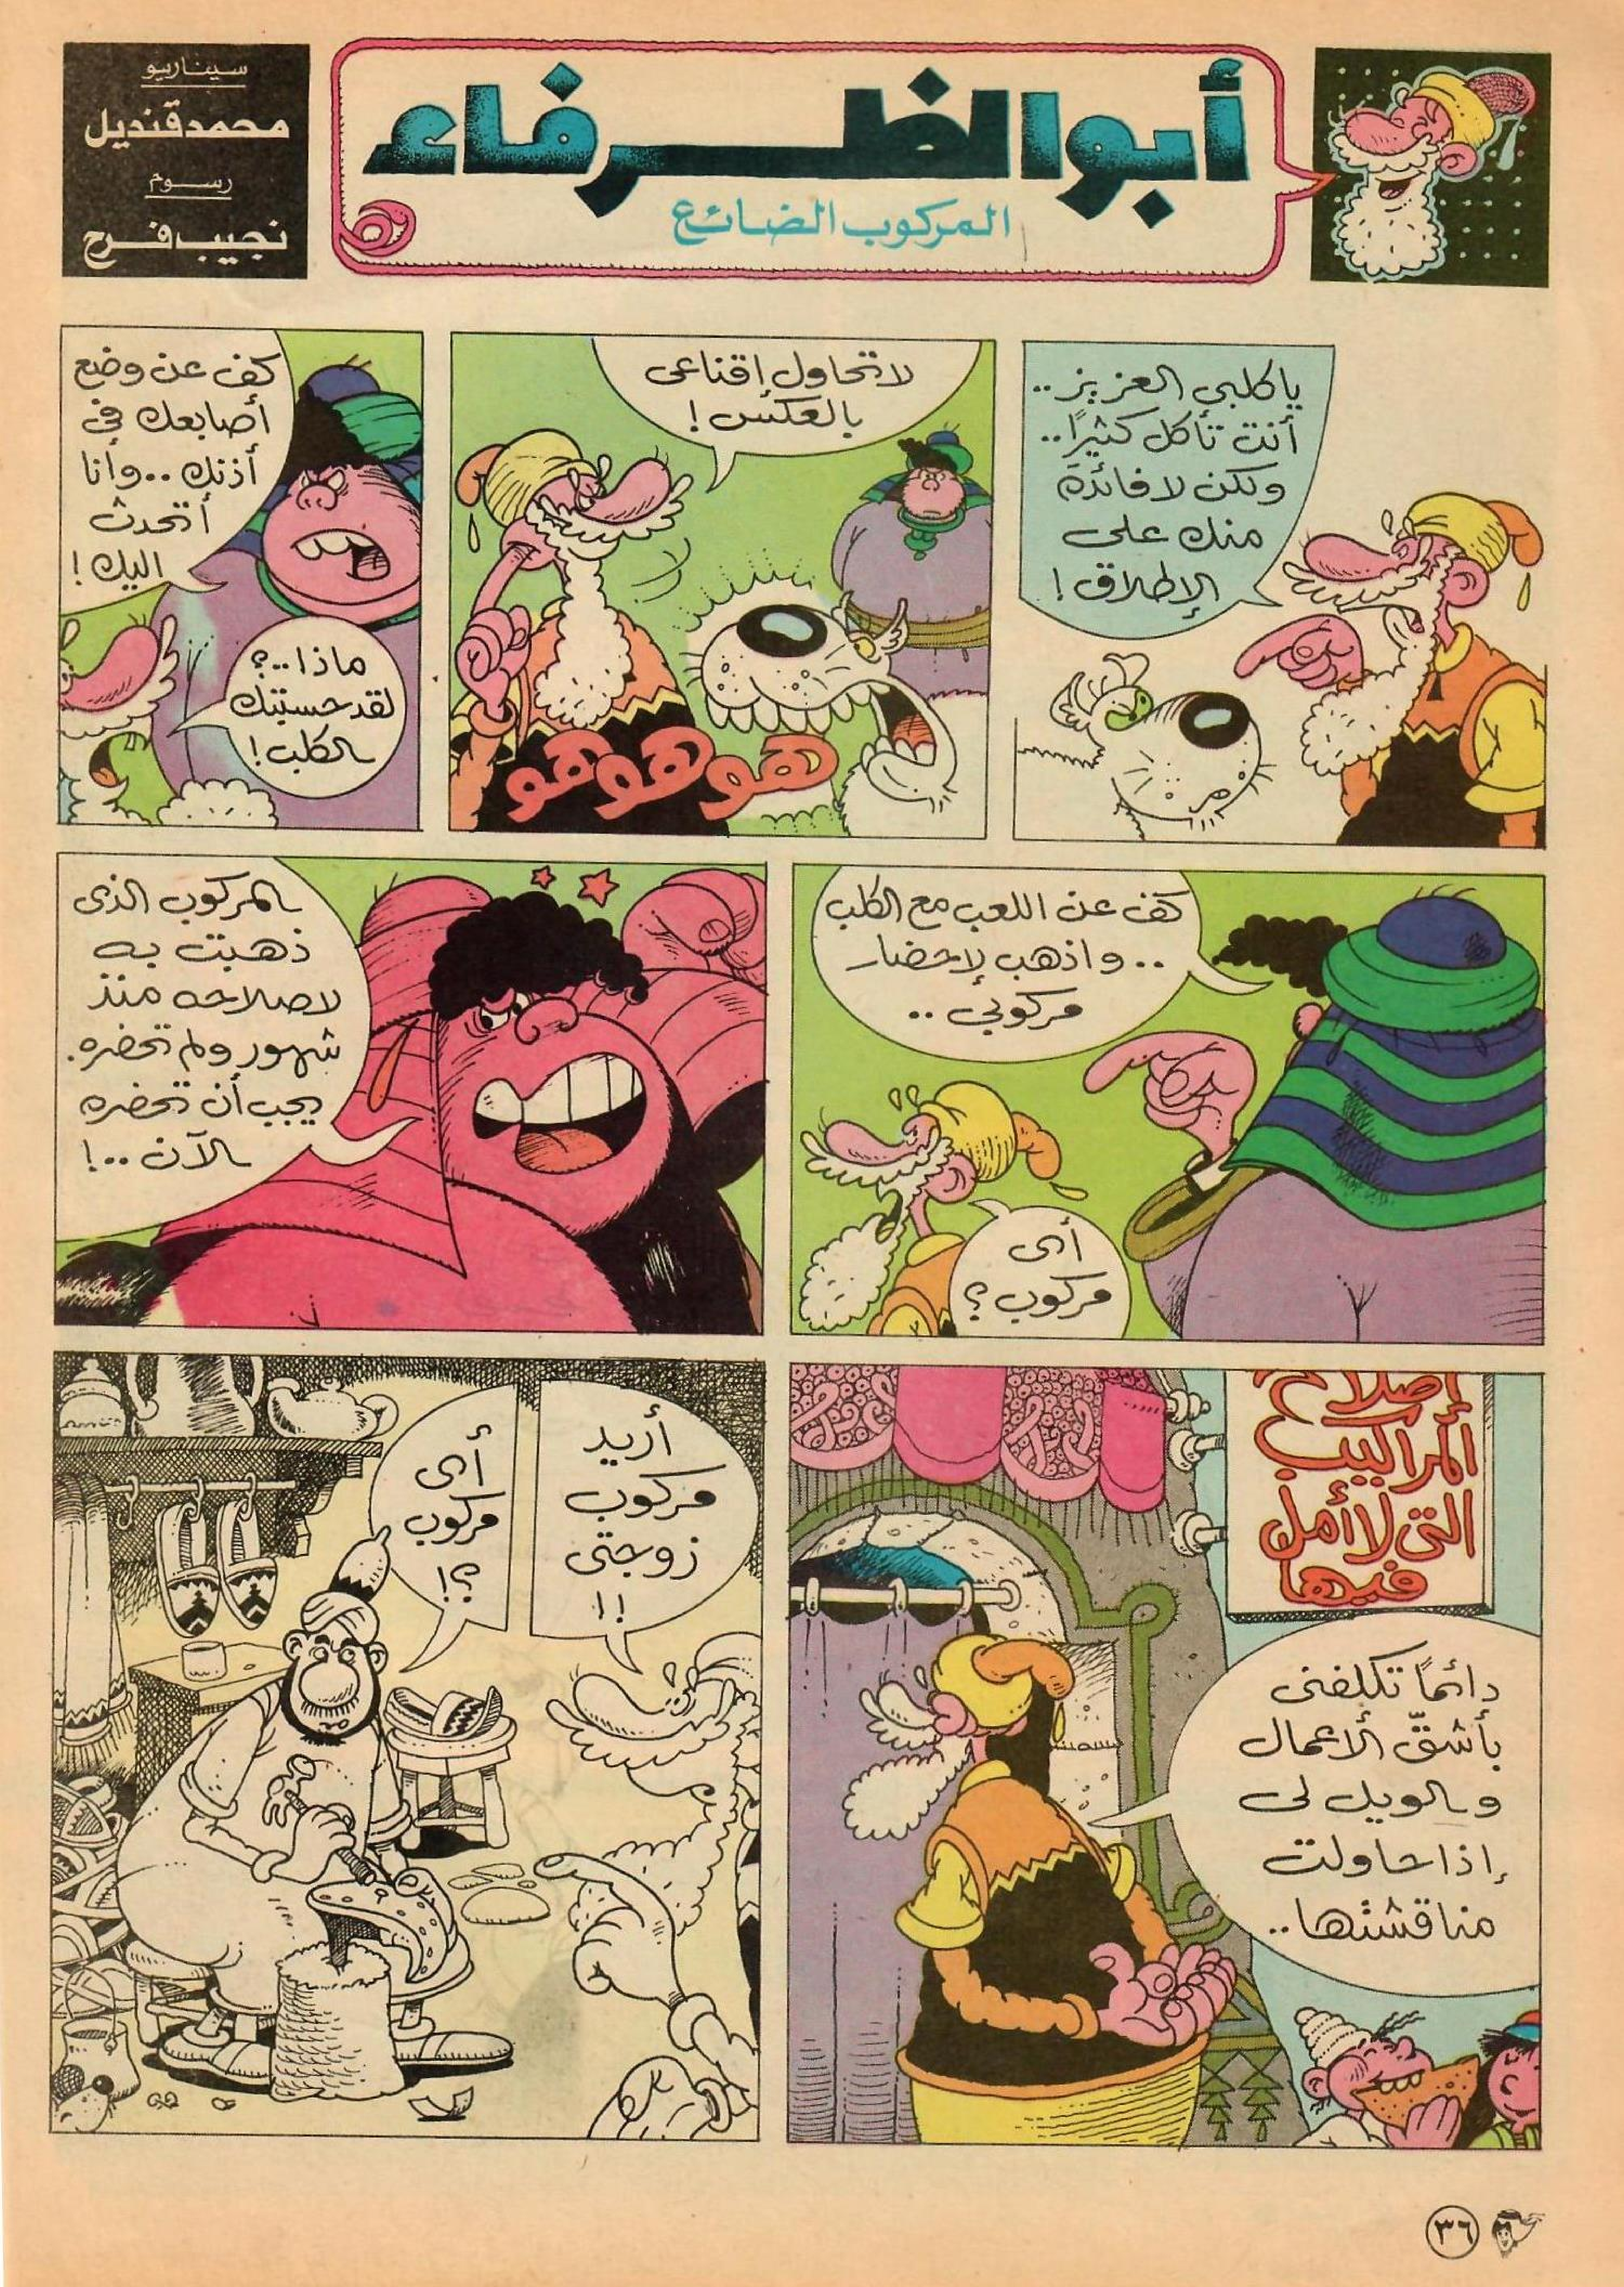 أبو الظرفاء
المركوب الضائع
سيناريو
محمد قنديل
رسوم
نجيب فرح
ياكلبي العزيز..
أنت تأكل كثيرًا..
ولكن لا فائدة
منك على
الإطلاق!
لا تحاول إقناعى
بالعكس!
هو هو هو
كف عن وضع
أصابعك فى
أذنك.. وأنا
أتحدث
اليك!
ماذا..؟
لقد حسبتك
الكلب!
كف عن اللعب مع الكلب
.. واذهب لإحضار
مركوبي..
أى
مركوب؟
المركوب الذى
ذهبت به
لاصلاحه منذ
شهور ولم تحضره.
يجب أن تحضره
الآن..!
إصلاح
المراكيب
التى لا أمل
فيها
دائمًا تكلفنى
بأشقّ الأعمال
والويل لى
إذا حاولت
مناقشتها..
أريد
مركوب
زوجتى
!!
أى
مركوب
؟!
٣٦